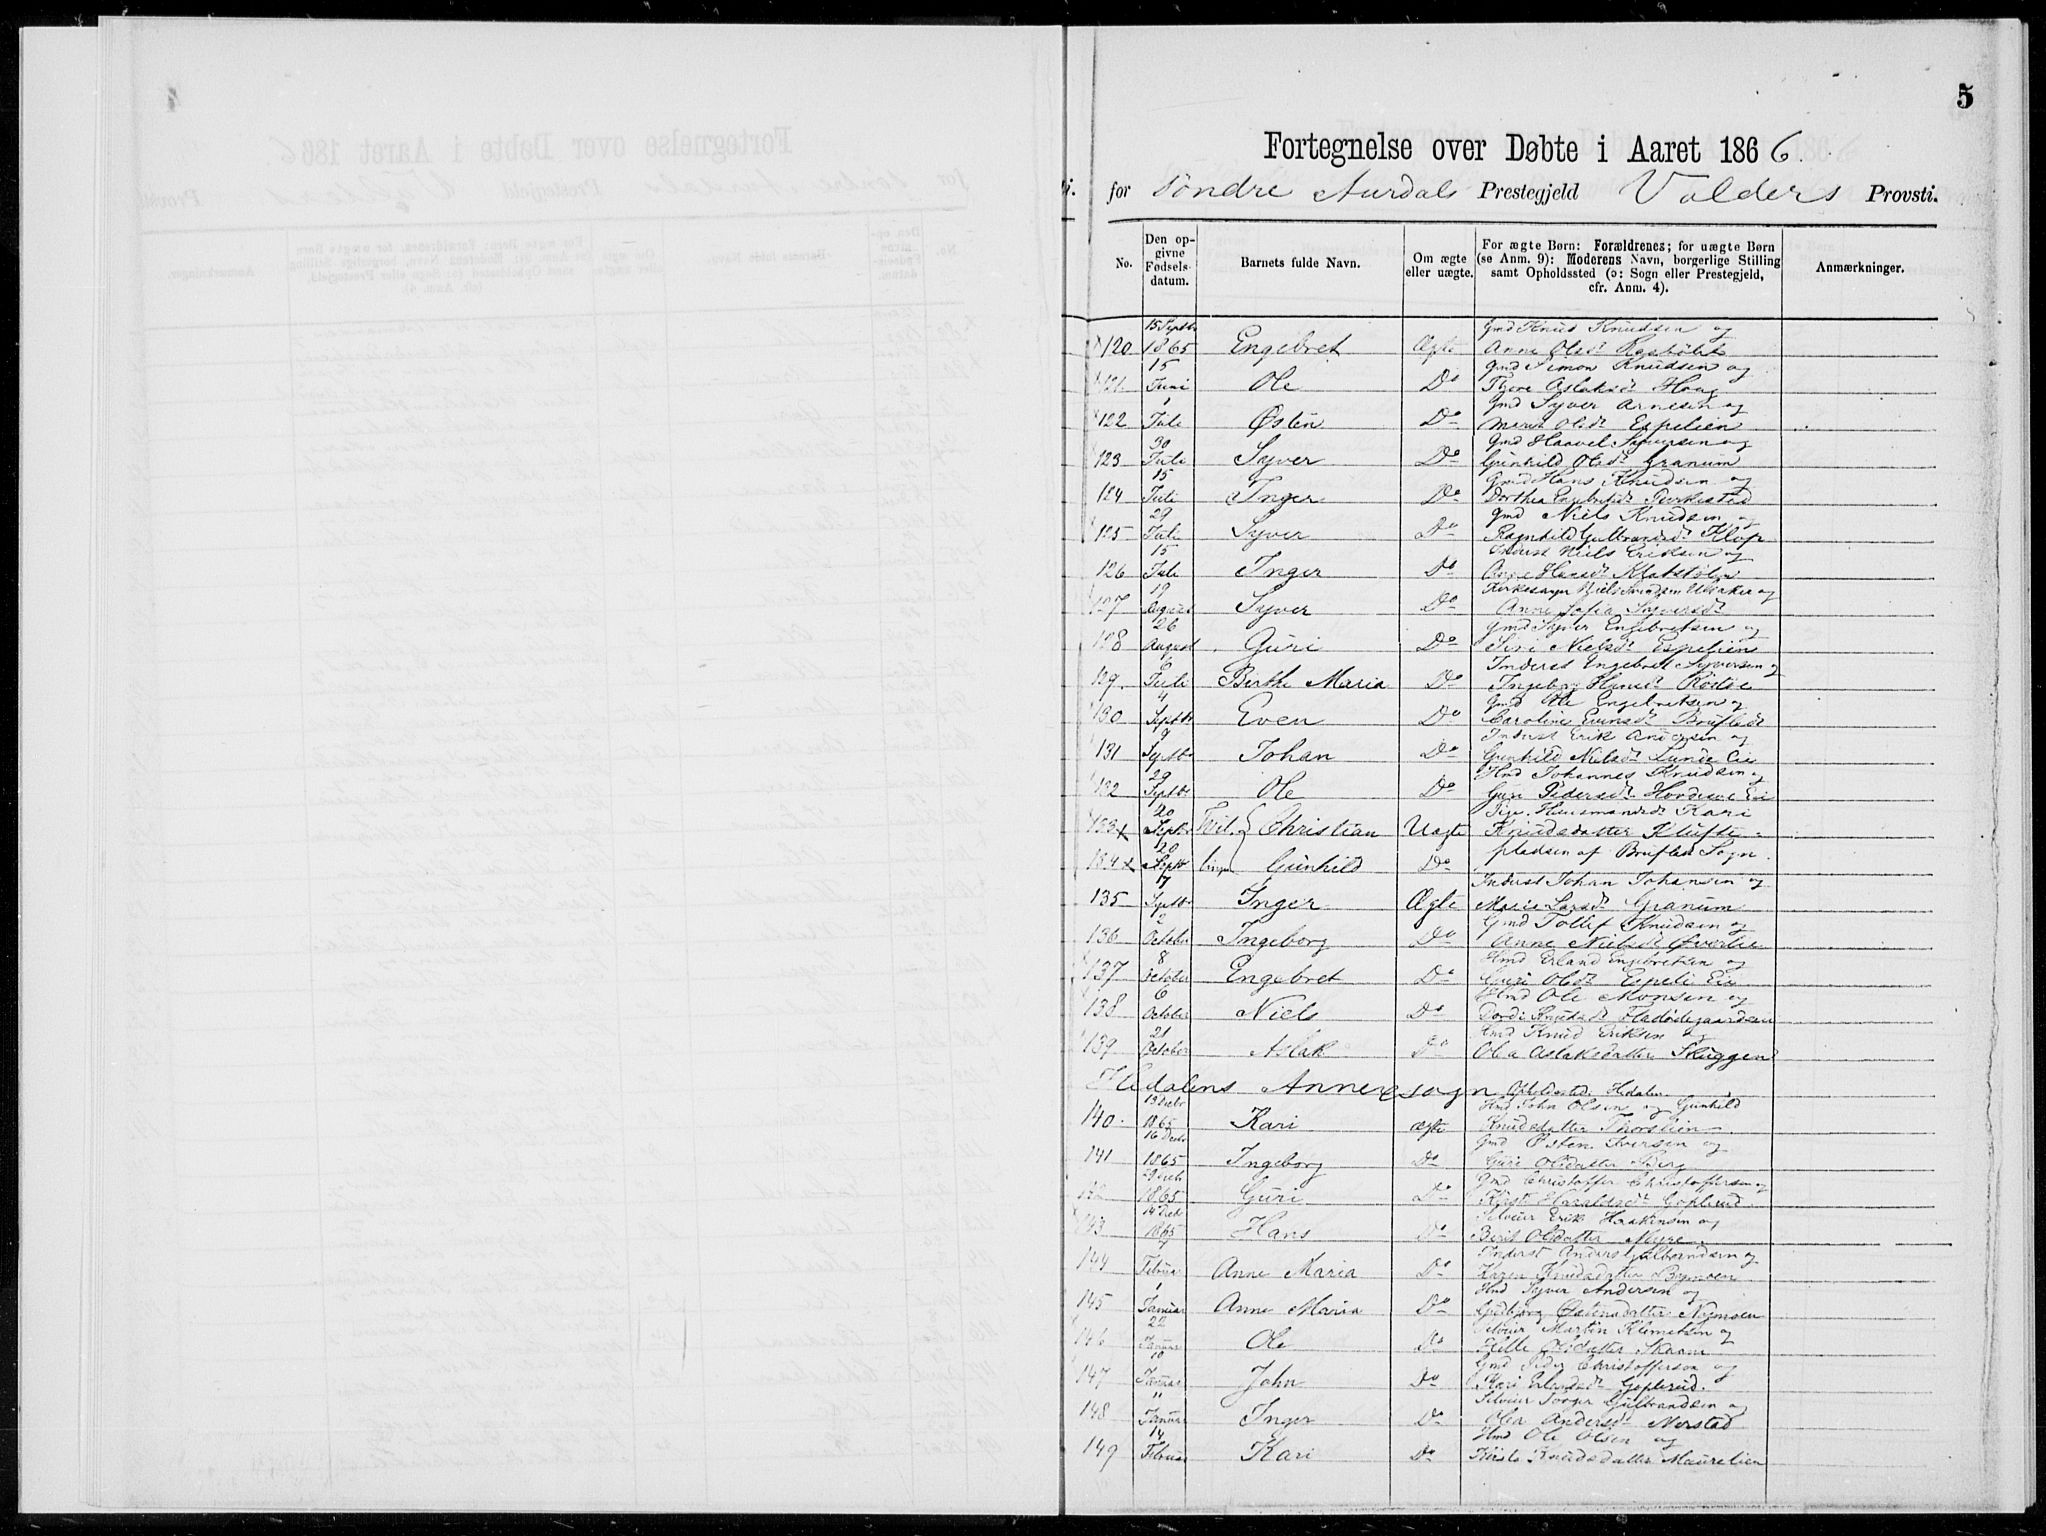 5
Fortegnelse over Døbte i Aaret 1866.
for Søndre Aurdals Prestegjeld Valders Provsti.
No. Den opgivne Fødselsdatum. Barnets fulde Navn. Om ægte eller uægte. For ægte Børn: Forældrenes; for uægte Børn (se Anm. 9): Moderens Navn, borgerlige Stilling samt Opholdssted (ɔ: Sogn eller Prestegjeld, cfr. Anm. 4). Anmærkninger.
15 Septbr Gmd Knud Knudsen og
120 1865 Engebret Ægte Anne Olsdr
15 Gmd Simon Knudsen og
121 Juni Ole Do Thore Aslaksdr Haug
1 Gmd Syver Arnesen og
122 Juli Østen Do Marit Olsdr Espelien
30 Gmd Haavel Syversen og
123 Juli Syver Do Gunhild Olsdr Granum
15 Gmd Hans Knudsen og
124 Juli Inger Do Dorthea Engebretsdr
29 Gmd Niels Knudsen og
125 Juli Syver Do Ragnhild Gulbrandsdr Klop
15 Inderst Niels Eriksen og
126 Juli Inger Do Anne Hansdr
19 Kirkesanger Niels
127 August Syver Do Anne Sofia Syversdr
26 Gmd Syver Engebretsen og
128 August Guri Do Siri Nielsdr Espelien
6 Inderst Engebret Syversen og
129 Juli Birthe Maria Do Ingeborg Hansdr
4 Gmd Ole Engebretsen og
130 Septbr Even Do Caroline Evensdr Bruflat
9 Inderst Erik Andersen og
131 Septbr Johan Do Gunhild Nielsdr Lunde Eie
29 Hmd Johannes Knudsen og
132 Septbr Ole Do Guri Pedersdr
20 Pige Husmandsdr Kari
133 Septbr Tvil- Christian Uægte Knudsdatter Klufte-
20 pladsen af Bruflat Sogn.
134 Septbr linger Gunhild Do
17 Inderst Johan Johansen og
135 Septbr Inger Ægte Marie Larsdr Granum
2 Gmd Tollef Knudsen og
136 October Ingeborg Do Anne Nielsdr Sværtlie
8 Hmd Erland Engebretsen og
137 October Engebret Do Guri Olsdr Espelie Eie
6 Hmd Ole Monsen og
138 October Niels Do Dordi Knutsdr
21 Hmd Knud Eriksen og
139 October Aslak Do Olea Aslaksdatter Skuggen
Hedalens Annexsogn Opholdssted: Hedalen
13 Decbr Hmd John Olsen og Gunhild
140 1865 Kari ægte Knudsdatter Thorslien
16 Decbr Gmd Østen Iversen og
141 1865 Ingeborg Do Guri Olsdatter Berg
29 Decb Gmd Christoffer Christoffersen og
142 1865 Guri Do Kirsti Haraldsdr Goplerud
14 Decb Selveier Erik Haakensen og
143 1865 Hans Do Berit Olsdatter Myre
7 Inderst Anders Gulbrandsen og
144 Februar Anne Maria Do Karen Knudsdatter
1 Hmd Syver Andersen og
145 Januar Anne Maria Do Gudbjørg Østensdatter Nymoen
22 Selveier Martin Klemetsen og
146 Januar Ole Do Helle Olsdatter
10 Gmd Peder Christoffersen og
147 Januar John Do Kari Erlandsdr Goplerud.
11 Selveier Torger Gulbrandsen og
148 Januar Inger Do Olea Andersdr Nerstad
14 Hmd Ole Olsen og
149 Februar Kari Do Kirsti Knudsdatter Maurelien